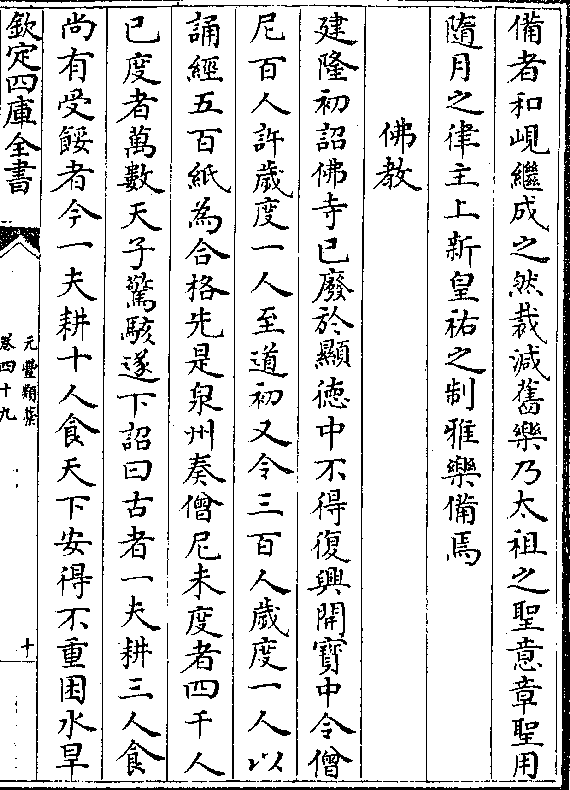 備者和峴繼成之然裁減舊樂乃太祖之聖意章聖用
隨月之律主上新皇祐之制雅樂備焉
佛教
建隆初詔佛寺已廢於顯徳中不得復興開寶中令僧
尼百人許歲度一人至道初又令三百人歲度一人以
誦經五百紙為合格先是泉州奏僧尼未度者四千人
已度者萬數天子驚駭遂下詔曰古者一夫耕三人食
尚有受餒者今一夫耕十人食天下安得不重困水旱
欽定四庫全書
元豐類藁
卷四十九
十